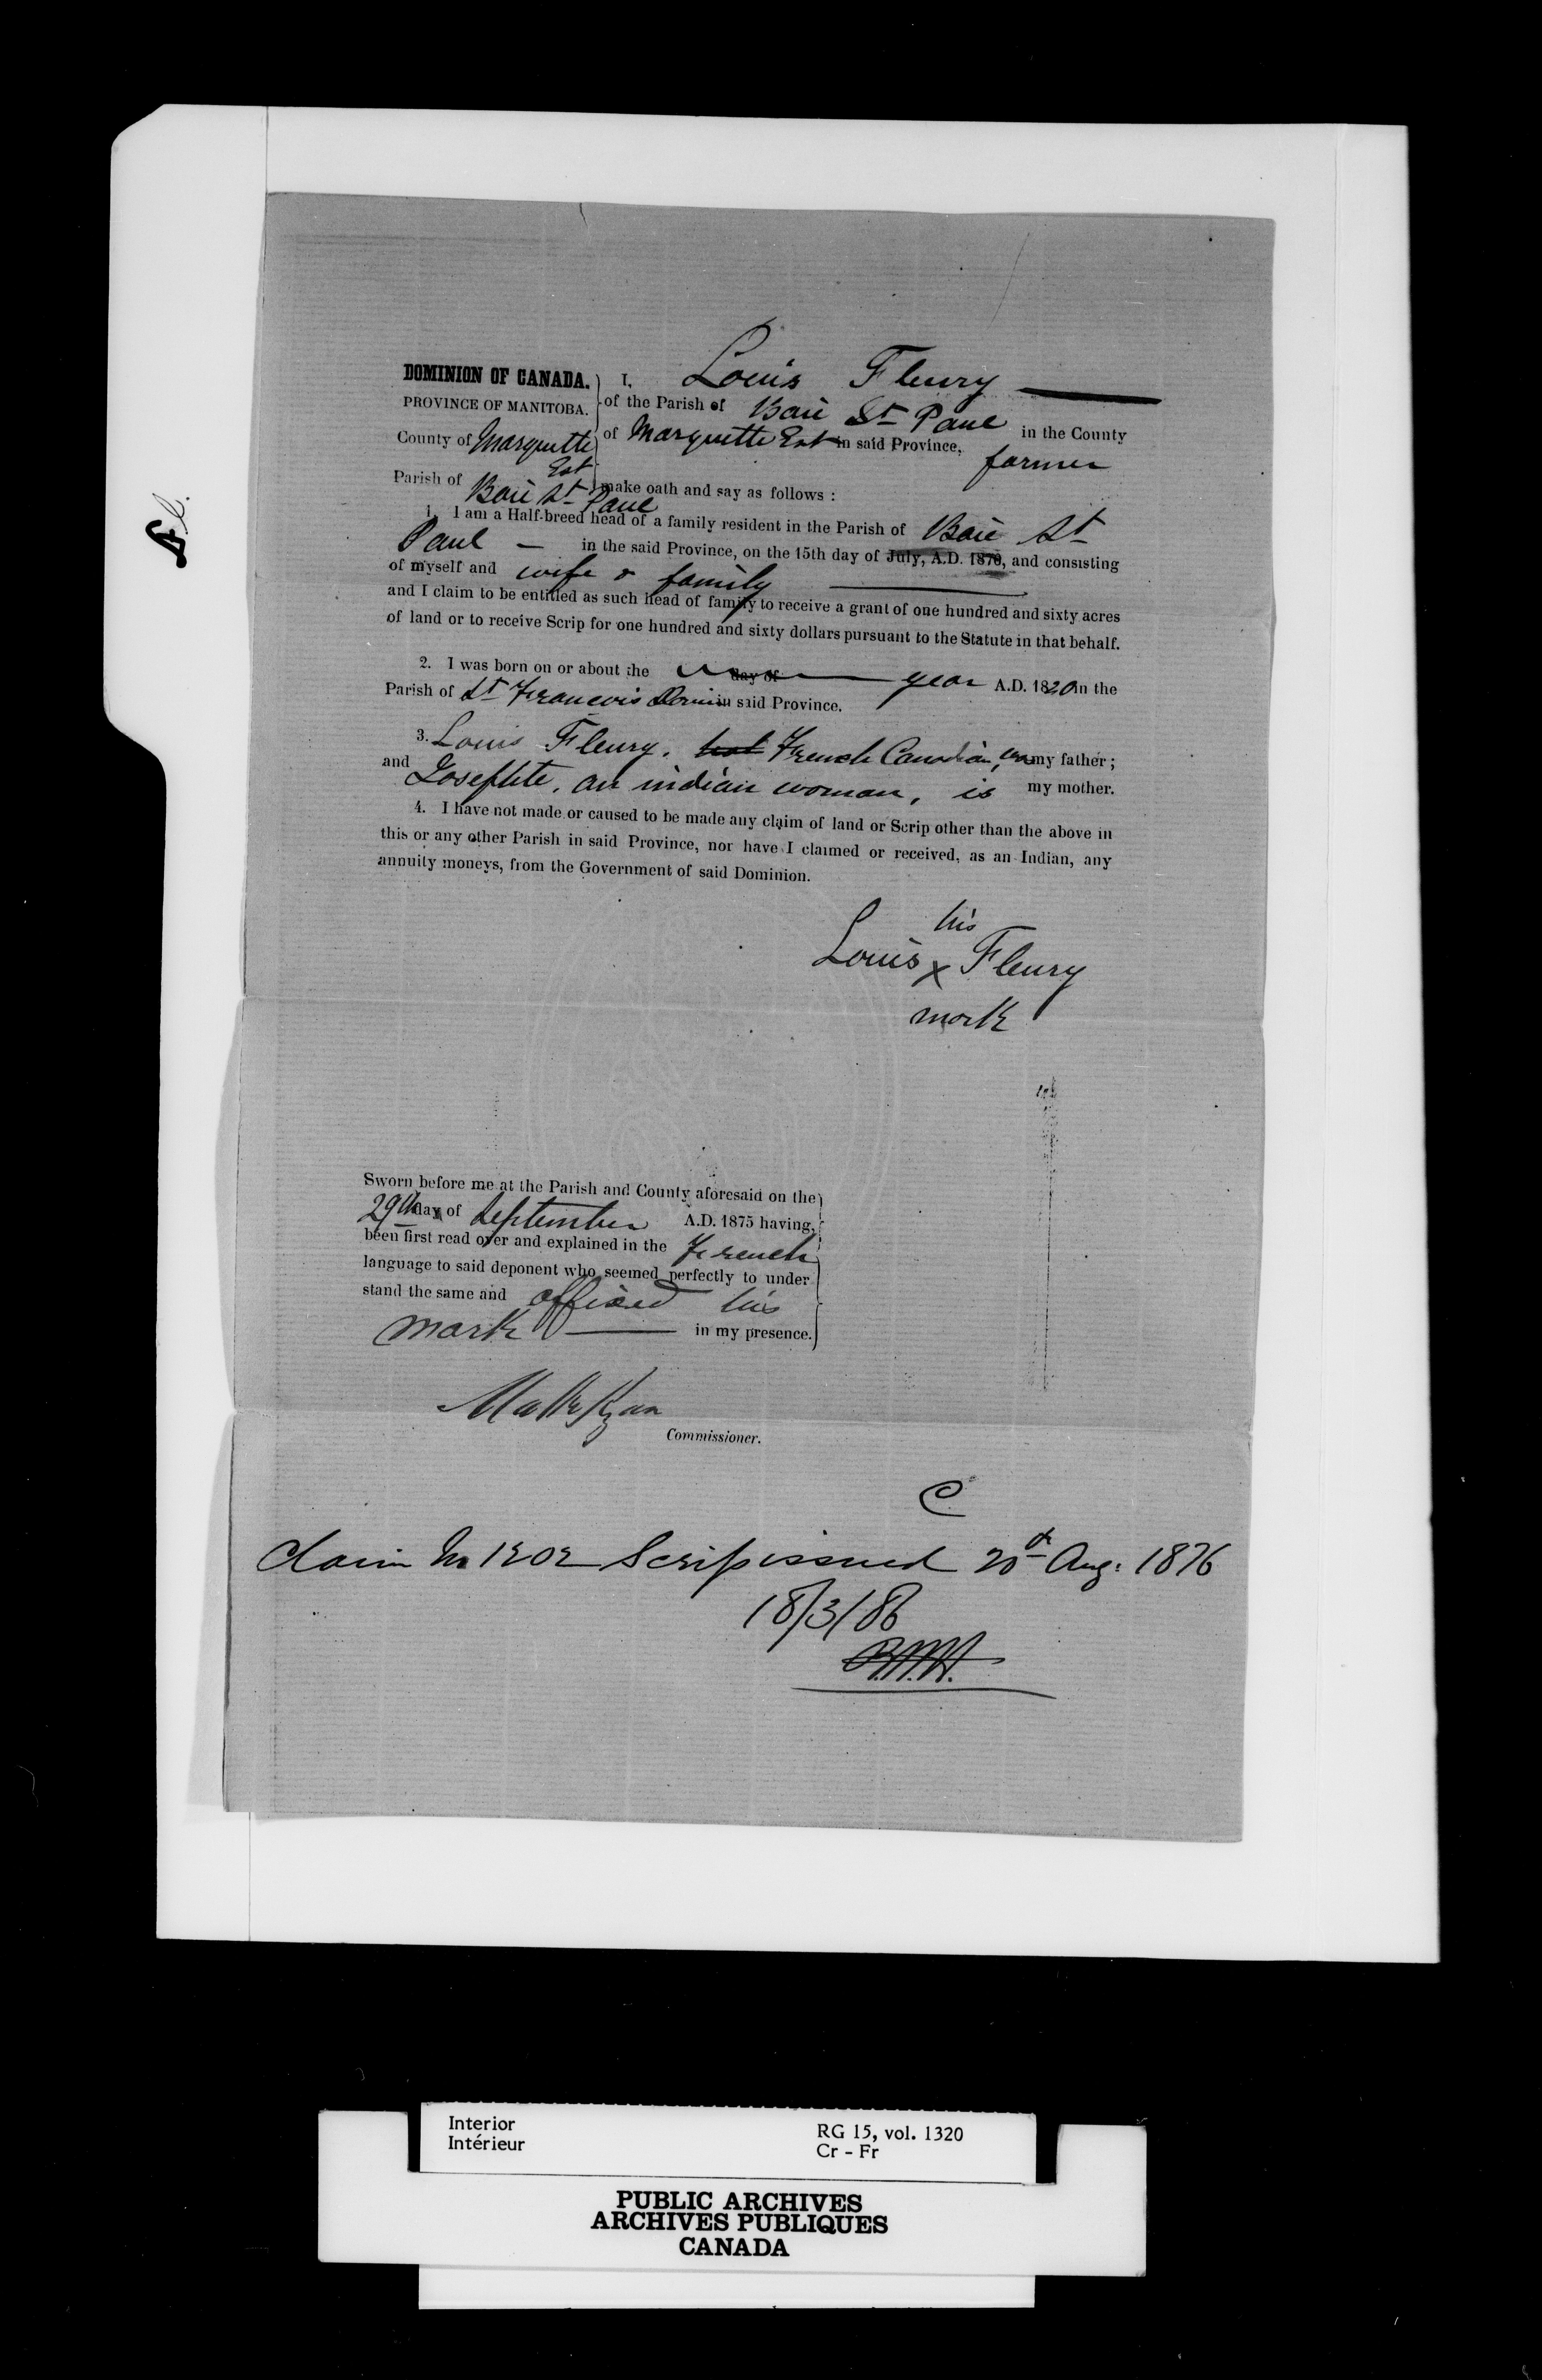 DOMINION OF CANADA.
PROVINCE OF MANITOBA.
County of Marquette Est
Parish of Baie St Paul
I, Louis Fleury
of the Parish of Baie St Paul in the County
of Marquette Est in said Province, farmer
make oath and say as follows :
1. I am a Half-breed head of a family resident in the Parish of Baie St
Paul – in the said Province, on the 15th day of July, A.D. 1870, and consisting
of myself and wife & family
and I claim to be entitled as such head of family to receive a grant of one hundred and sixty acres
of land or to receive Scrip for one hundred and sixty dollars pursuant to the Statute in that behalf.
2. I was born on or about the day of year A.D. 1820 in the
Parish of St Francois in said Province.
3. Louis Fleury, French Canadian, was my father ;
and Josephte, an indian woman, is my mother.
4. I have not made or caused to be made any claim of land or Scrip other than the above in
this or any other Parish in said Province, nor have I claimed or received, as an Indian, any
annuity moneys, from the Government of said Dominion.
his
Louis x Fleury
mark
Sworn before me at the Parish and County aforesaid on the
29th day of September A.D. 1875 having,
been first read over and explained in the French
language to said deponent who seemed perfectly to under
stand the same and affixed his
mark in my presence.
Matt Ryan
Commissioner.
C
Claim No 1202 Scrip issued 20th Aug: 1876
18/3/86
Interior
Intérieur
RG 15, vol. 1320
Cr - Fr
PUBLIC ARCHIVES
ARCHIVES PUBLIQUES
CANADA